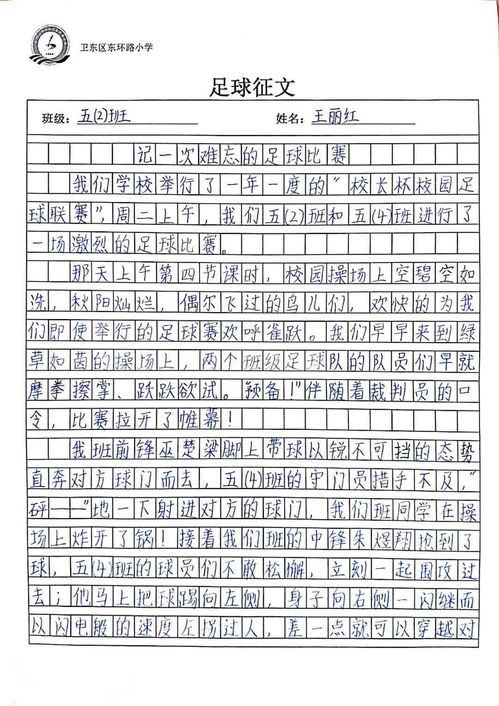 卫东区东环路小学
足球征文
班级：五(2)班 姓名：王丽红
记一次难忘的足球比赛
我们学校举行了一年一度的“校长杯校园足
球联赛”，周二上午，我们五(2)班和五(4)班进行了
一场激烈的足球比赛。
那天上午第四节课时，校园操场上空碧空如
洗，秋阳灿烂，偶尔飞过的鸟儿们，欢快的为我
们即使举行的足球赛欢呼雀跃。我们早早来到绿
草如茵的操场上，两个班级足球队的队员们早就
摩拳擦掌、跃跃欲试。预备！”伴随着裁判员的口
令，比赛拉开了帷幕！
我班前锋巫楚梁脚上带球以锐不可挡的态势
直奔对方球门而去，五(4)班的守门员措手不及，“
砰——”地一下射进对方的球门，我们班同学在操
场上炸开了锅！接着我们班的中锋朱煜翔抢到了
球，五(4)班的球员们不敢松懈，立刻一起围攻过
去；他马上把球踢向左侧，身子向右侧一闪继而
以闪电般的速度左拐过人，差一点就可以穿越对